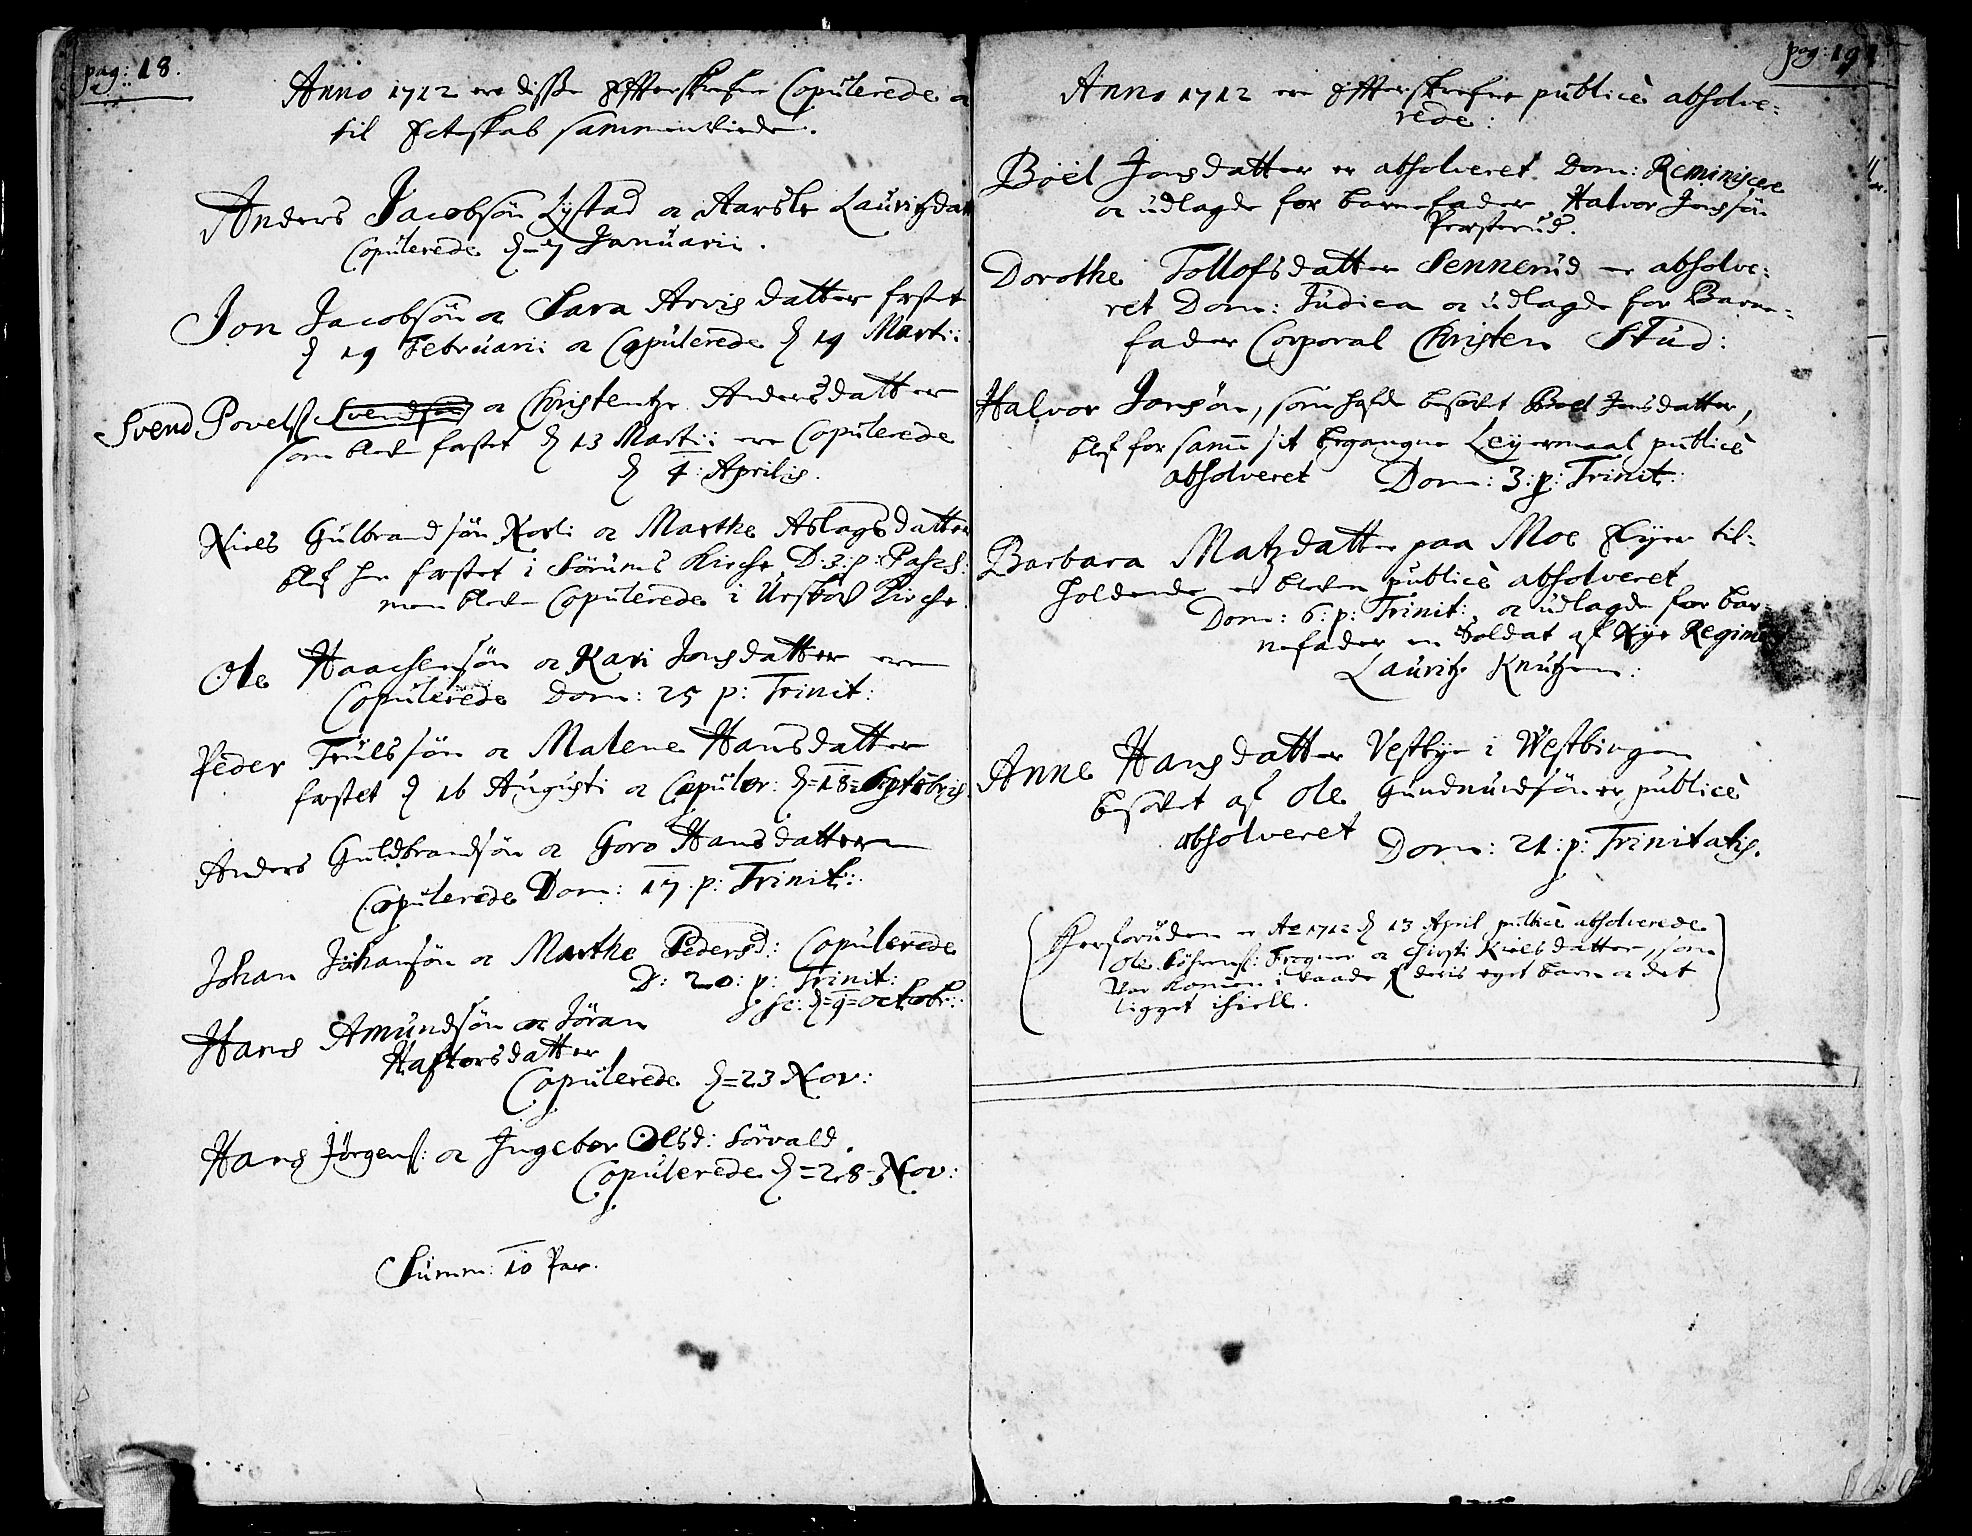 pag: 18.
Anno 1712 ere disse Effterskrefne Copulerede oc
til Ecteskab sammenviede.
Anders Jacobsön Lystad oc Lauritzdat
Copulerede d. 7 Januarii.
Jon Jacobsön oc Sara Arvisdatter festet
d 19 Februarii oc Copulerede d 19 Marti:
Svend Povels: Svendsön oc Christentze Andersdatter
som blev festet d 13 Martii ere Copulerede
d 4: Aprilis.
Niels Gulbrandsön oc Marthe Aslagsdatter
blef her festet i Sörums Kirche D: 3: p: Pasch:
men bleve Copulerede i Urskov Kirche
Ole Haachensön oc Kari Jonsdatter ere
Copulerede Dom: 25 p: Trinit:
Peder Trulssön oc Malene Hansdatter
festet d 16 Augusti oc Copuler: d=18= Septebris
Anders Guldbrandsön oc Goro Hansdatter
Copulerede Dom: 17 p: Trinit:
Johan Johansön oc Marthe Pedersd: Copulerede
D: 20: p: Trinit:
d=9=Octobr:
Hans Amundsön oc Jöran
Haftorsdatter
Copulerede d=23 Nov:
Hans Jörgens: oc Ingebor Olsd: Sörvald
Copulerede d=28 Nov:
Summ: 10 Par.
pag: 19
Anno 1712 ere Effterskrefne publicè absolve:
rede:
Boël Jonsdatter er absolveret Dom: Reminiscere
oc udlagde for barnefader Halvor Jonssön
Presterud.
Dorothe Tollofsdatter Sennerud er absolve:
ret Dom: Judica oc udlagde for Barne:
fader Corporal Christen Stud:
Halvor Jonsön, som hafde besovet Boel Jonsdatter,
blef for samme sit begangne Leyermaal publicè
absolveret Dom: 3: p: Trinit:
Barbara Matzdatter paa Moe Eyer til:
holdende er bleven publicè absolveret
Dom: 6: p: Trinit: oc udlagde for bar:
nefader en Soldat af Nye Regim
Lauritz Knutzen:
Anne Hansdatter Vestbye i Westbingen
besovet af Ole Gundmundsön er publicè
absolveret Dom: 21: p: Trinitatis.
Herforuden er Ao 1712 d 13 April publicè absolverede
Ole Fregner oc Kielsdatter, som
var kommen i vaade deris eget barn oc det
ligget ihiell.